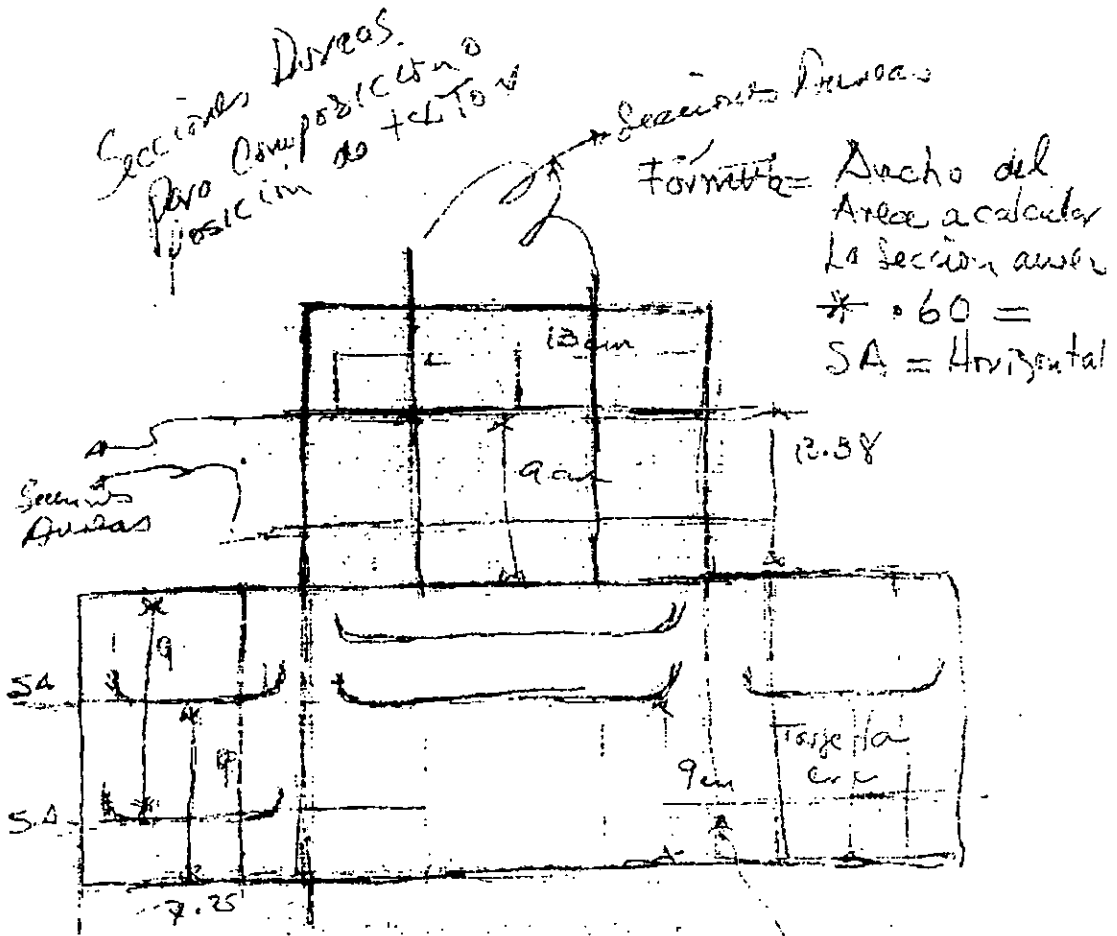 Secciones Aureas
para Composición o
posición de
Secciones Aureas
Fórmula = Ancho del
Area a calcular
La sección aurea
* .60 =
SA = Horizontal
13 cm
13.38
9 cm
Secciones
Aureas
9
SA
9
9 cm
Tarjeta
SA
7.25